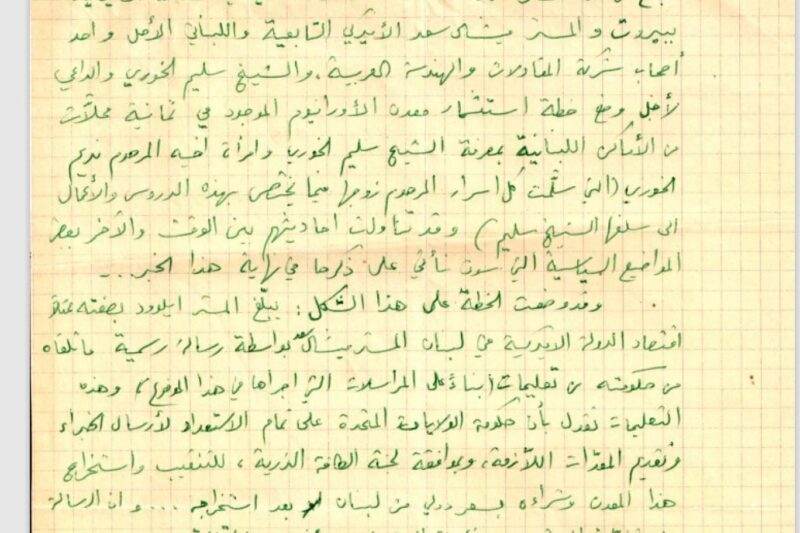 ببيروت والمستر ميشال سعد الأميركي التابعية واللبناني الأصل واحد
أصحاب شركة المقاولات والهندسة العربية، والشيخ سليم الخوري والداعي
لأجل وضع خطة استثمار معدن الأورانيوم الموجود في ثمانية محلّات
من الأماكن اللبنانية بمعرفة الشيخ سليم الخوري وامرأة اخيه المرحوم نديم
الخوري (التي سلّمت كل اسرار المرحوم زوجها فيما يختص بهذه الدروس والأعمال
الى سلفها الشيخ سليم) وقد تناولت احاديثهم بين الوقت والآخر بعض
المواضيع السياسية التي سوف نأتي على ذكرها في نهاية هذا الخبر...
وقد وضعت الخطة على هذا الشكل: يبلّغ المستر ايلوود بصفته ممثلا
اقتصاد الدولة الاميركية في لبنان المستر ميشال سعد بواسطة رسالة رسمية ما تلقاه
من حكومته من تعليمات (بناءً على المراسلات التي اجراها في هذا الموضوع)، وهذه
التعليمات تقول بأن حكومة الولايات المتحدة على تمام الاستعداد لأرسال الخبراء
وتقديم المعدّات اللّازمة، وبموافقة لجنة الطاقة الذرية، للتنقيب واستخراج
هذا المعدن وشراءه بسعر دولي من لبنان بعد استخراجه ... وان الرسالة